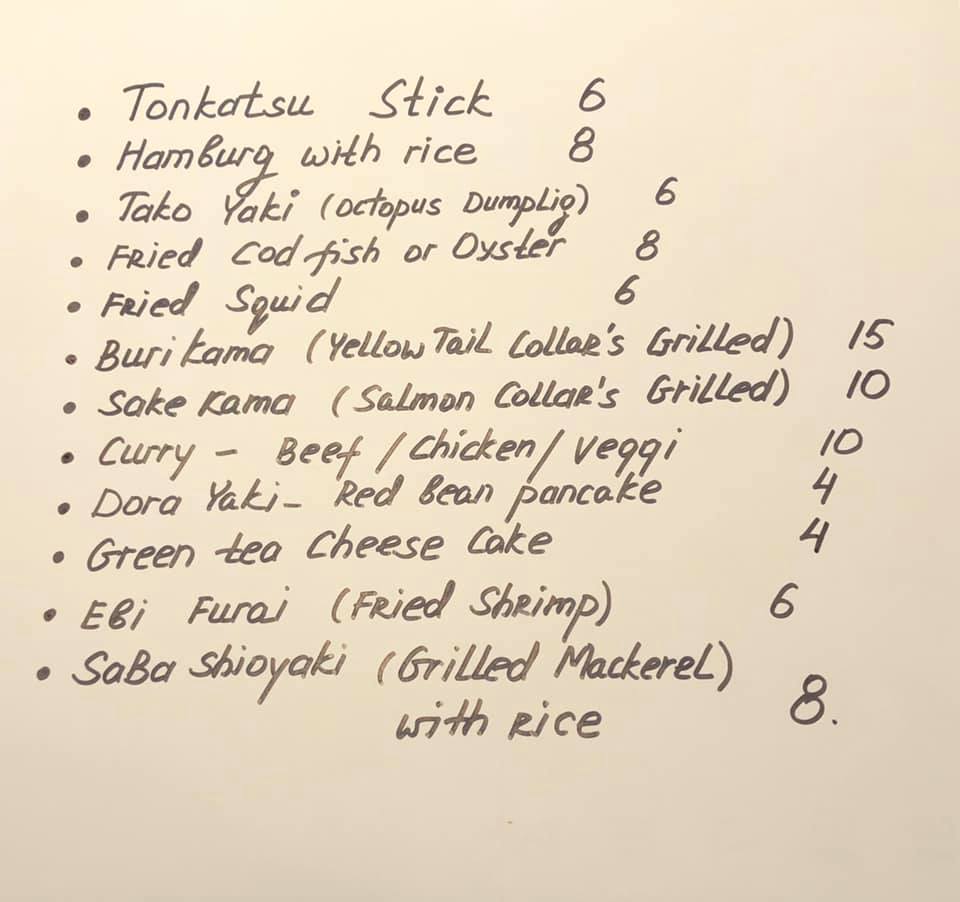 • Tonkatsu Stick 6
• Hamburg with rice 8
• Tako Yaki (Octopus Dumplig) 6
• Fried Cod fish or Oyster 8
• Fried Squid 6
• Buri Kama (Yellow Tail Collar's Grilled) 15
• Sake Kama (Salmon Collar's Grilled) 10
• Curry - Beef / Chicken / Veggi 10
• Dora Yaki - Red Bean pancake 4
• Green tea Cheese Cake 4
• Ebi Furai (Fried Shrimp) 6
• Saba Shioyaki (Grilled Mackerel)
with Rice 8.